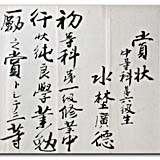 賞状
中等科第六級生
水埜廣德
初等科第一級修業中
行状純良學業勤
勵之賞トシテ三等